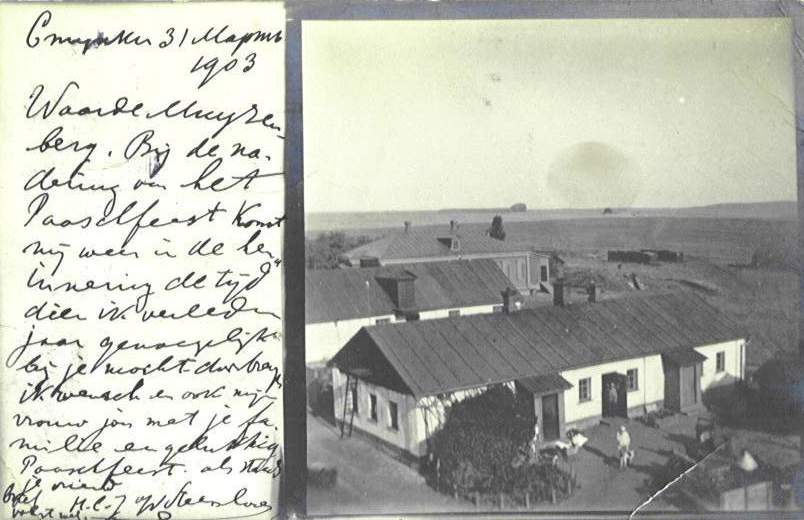 Ступки 31 Мартъ
1903
Waarde Muyzen-
berg. Bij de na-
dering van het
Paaschfeest komt
mij weer in de her-
innering de tijd
dien ik verleden
jaar genoegelijk
bij je mocht doorbreng
ik wensch en ook mijn
vrouw jou met je fa-
milie en gelukkig
Paaschfeest. als steeds
je vriend
H.C.J.